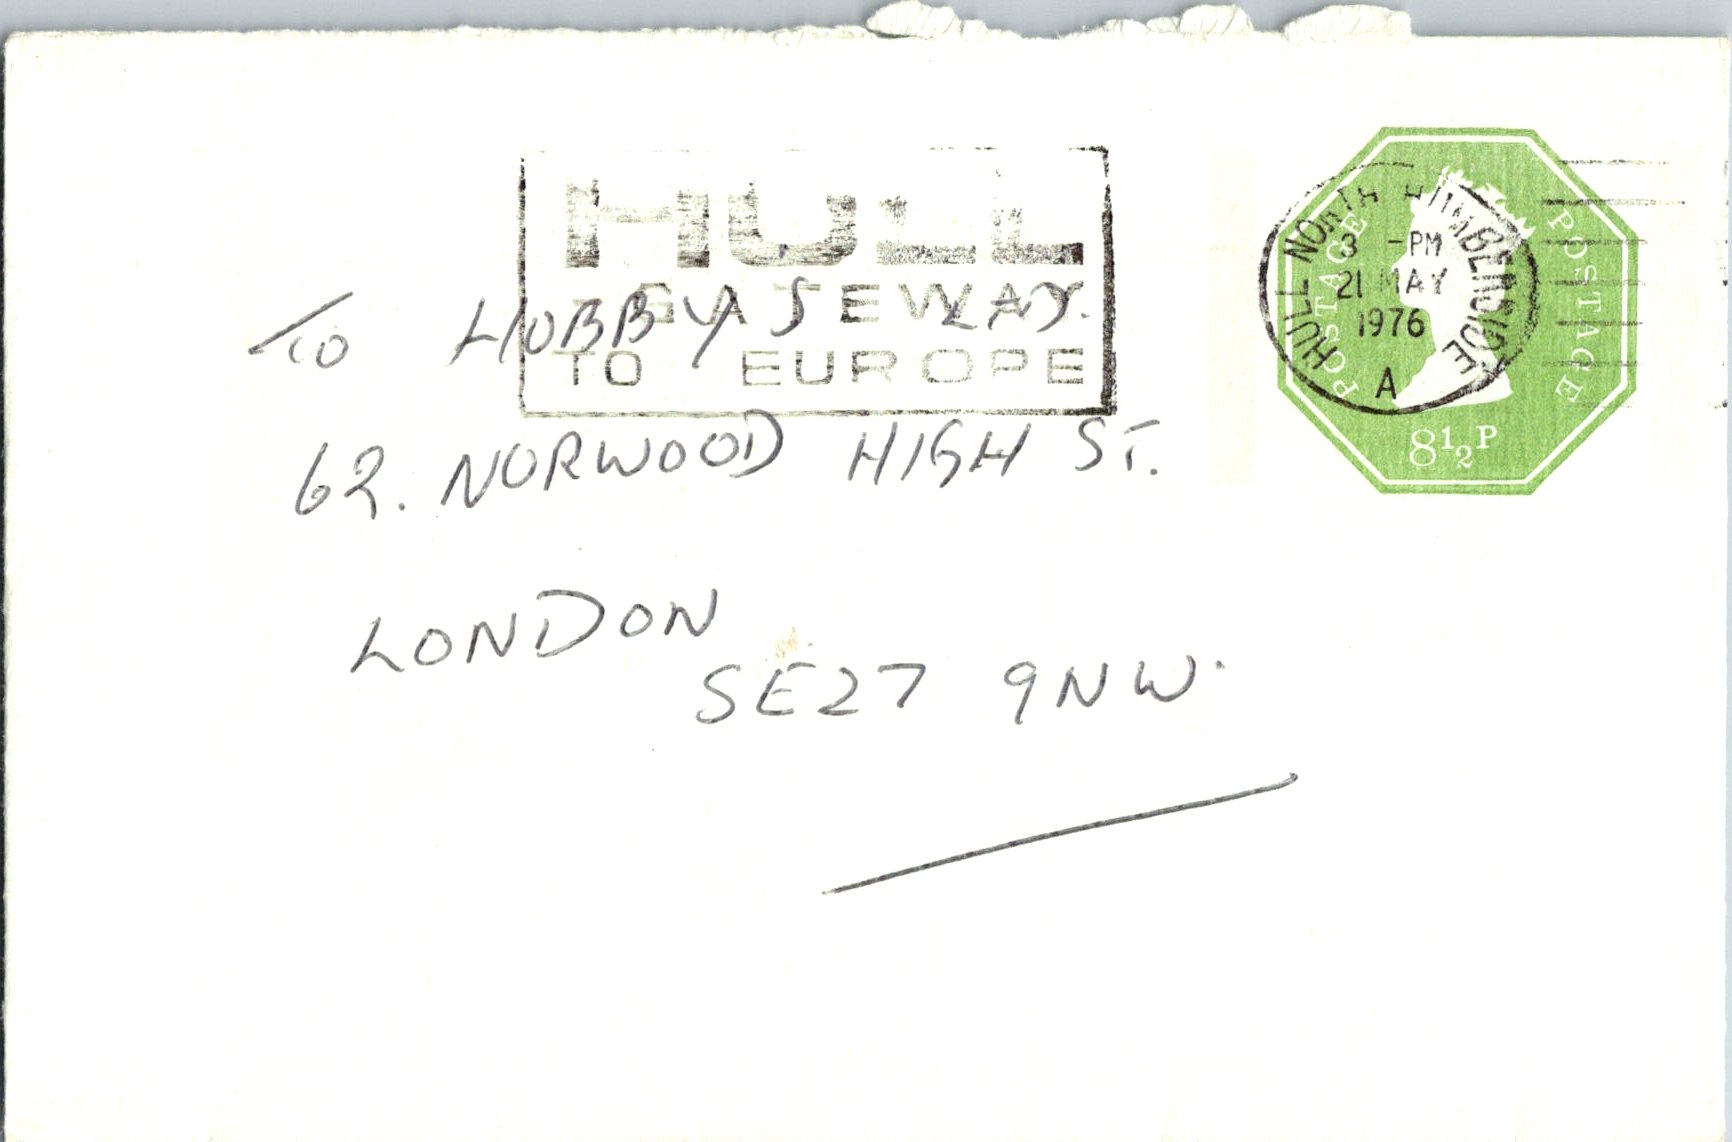 HULL
GATEWAY
TO EUROPE
HULL NORTH HUMBERSIDE
3 -PM
21 MAY
1976
A
POSTAGE
POSTAGE
8½P
TO HOBBY
62. NORWOOD HIGH ST.
LONDON
SE27 9NW.